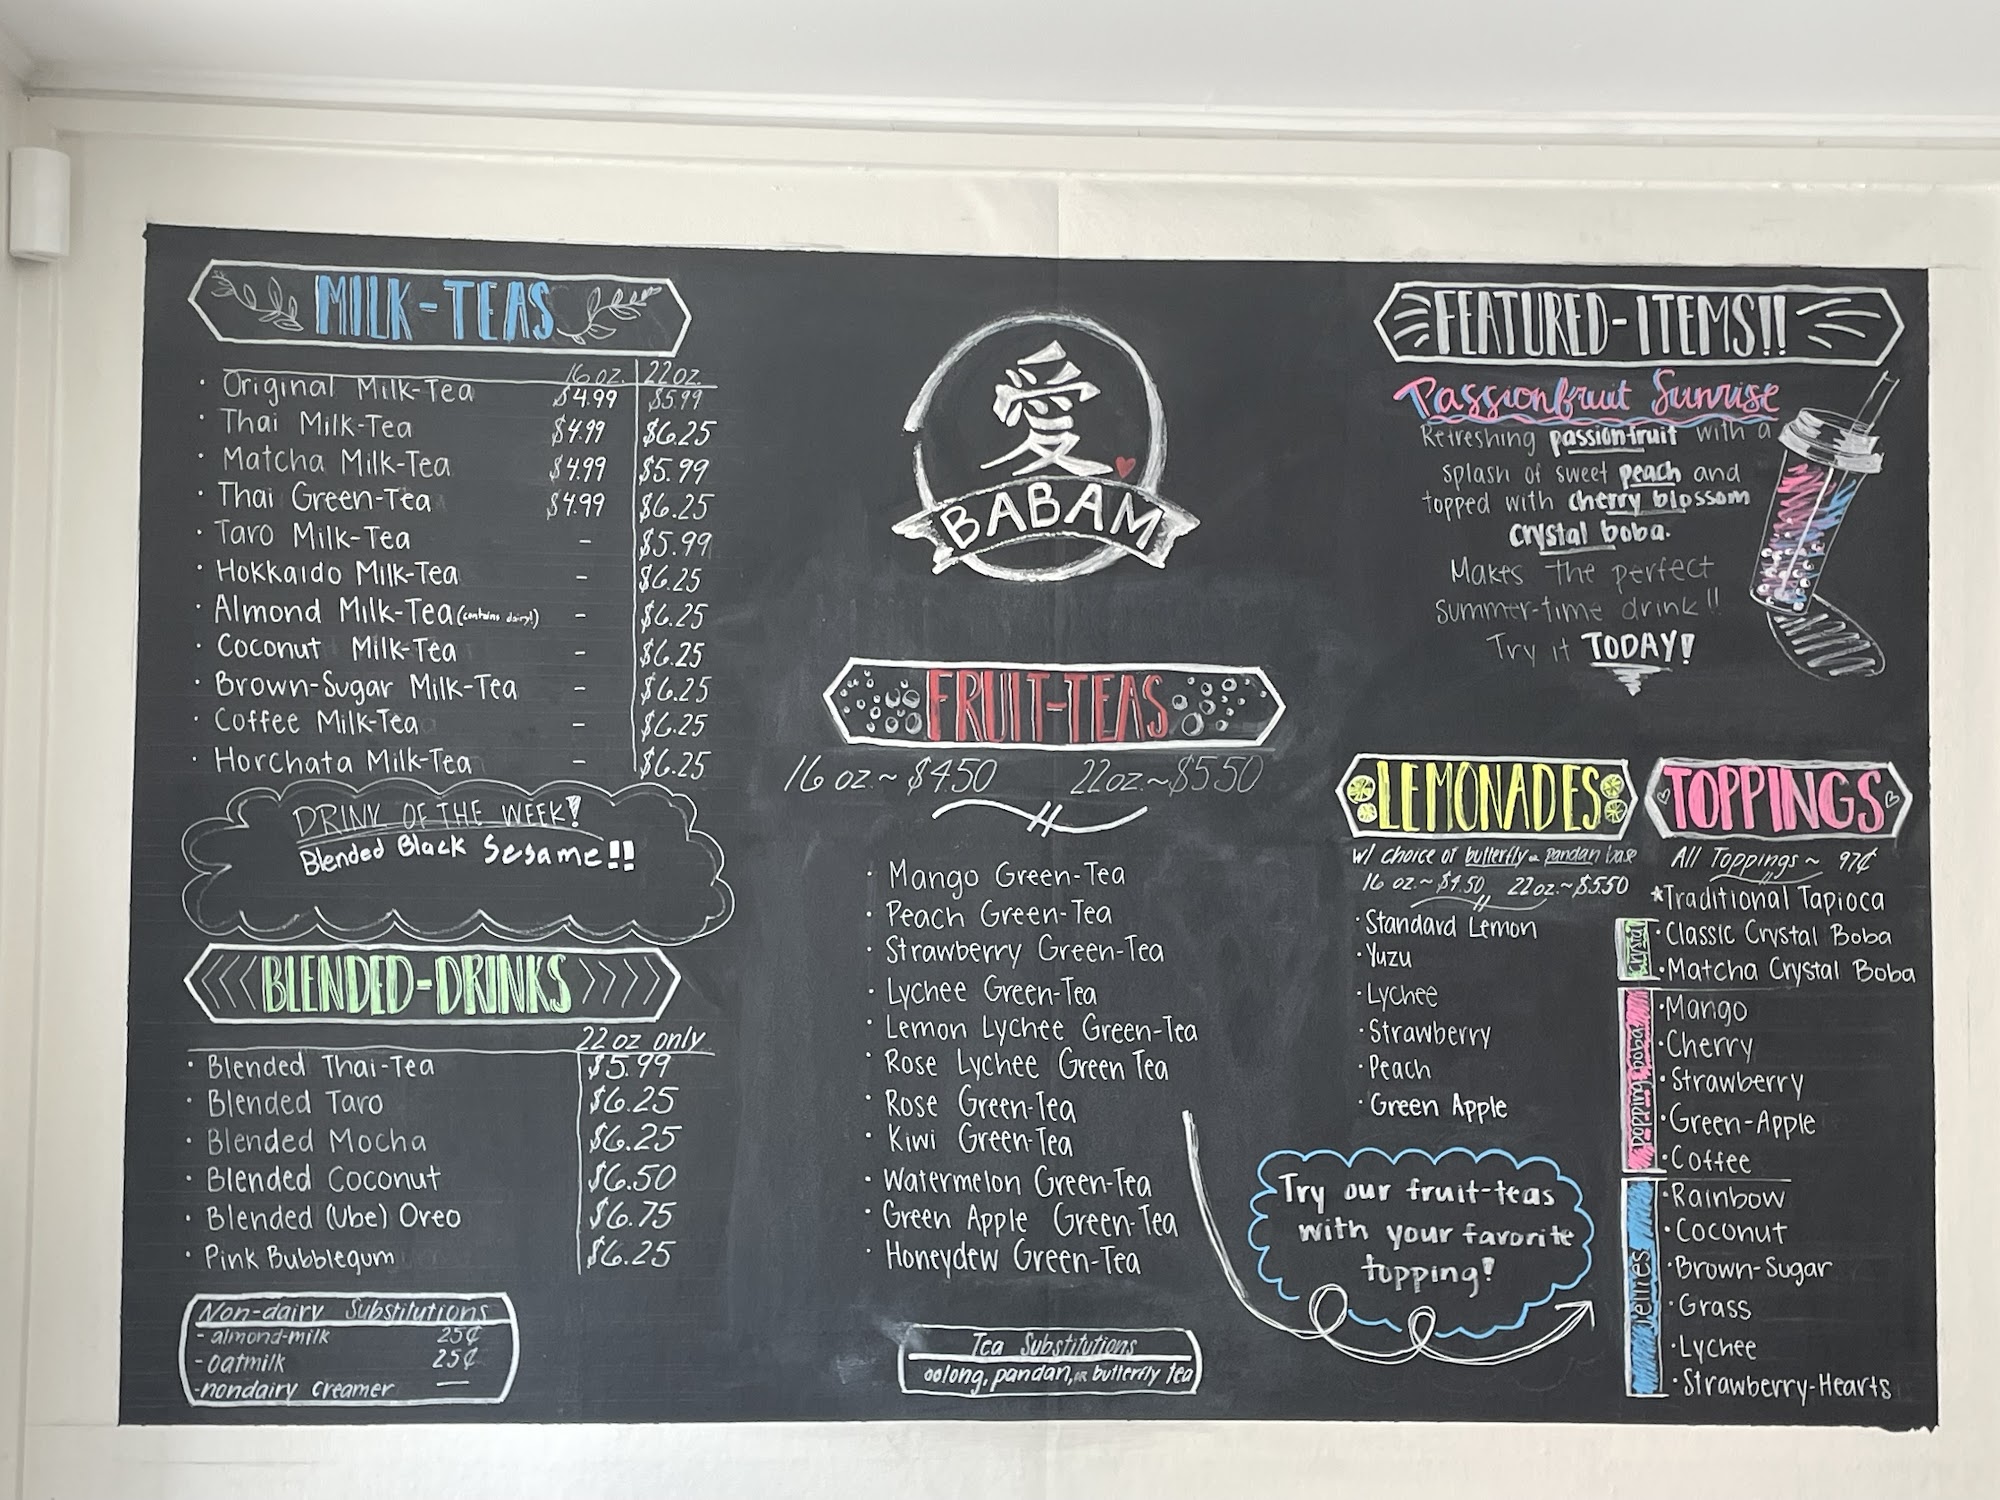 MILK-TEAS
16 oz. 22 oz.
· Original Milk-Tea $4.99 $5.99
· Thai Milk-Tea $4.99 $6.25
· Matcha Milk-Tea $4.99 $5.99
· Thai Green-Tea $4.99 $6.25
· Taro Milk-Tea - $5.99
· Hokkaido Milk-Tea - $6.25
· Almond Milk-Tea (contains dairy!) - $6.25
· Coconut Milk-Tea - $6.25
· Brown-Sugar Milk-Tea - $6.25
· Coffee Milk-Tea - $6.25
· Horchata Milk-Tea - $6.25
DRINK OF THE WEEK!
Blended Black Sesame!!
BLENDED-DRINKS
22 oz only
· Blended Thai-Tea $5.99
· Blended Taro $6.25
· Blended Mocha $6.25
· Blended Coconut $6.50
· Blended (Ube) Oreo $6.75
· Pink Bubblegum $6.25
Non-dairy Substitutions
- almond-milk 25¢
- oatmilk 25¢
- nondairy creamer —
愛
BABAM
FRUIT-TEAS
16 oz ~ $4.50 22oz. ~ $5.50
· Mango Green-Tea
· Peach Green-Tea
· Strawberry Green-Tea
· Lychee Green-Tea
· Lemon Lychee Green-Tea
· Rose Lychee Green Tea
· Rose Green-Tea
· Kiwi Green-Tea
· Watermelon Green-Tea
· Green Apple Green-Tea
· Honeydew Green-Tea
Tea Substitutions
oolong, pandan, or butterfly tea
FEATURED-ITEMS!!
Passionfruit Sunrise
Refreshing passionfruit with a
splash of sweet peach and
topped with cherry blossom
crystal boba.
Makes the perfect
summer-time drink!!
Try it TODAY!
LEMONADES
w/ choice of butterfly or pandan base
16 oz. ~ $4.50 22oz. ~ $5.50
· Standard Lemon
· Yuzu
· Lychee
· Strawberry
· Peach
· Green Apple
Try our fruit-teas
with your favorite
topping!
TOPPINGS
All Toppings ~ 97¢
*Traditional Tapioca
crystal
· Classic Crystal Boba
· Matcha Crystal Boba
popping boba
· Mango
· Cherry
· Strawberry
· Green-Apple
· Coffee
jellies
· Rainbow
· Coconut
· Brown-Sugar
· Grass
· Lychee
· Strawberry-Hearts